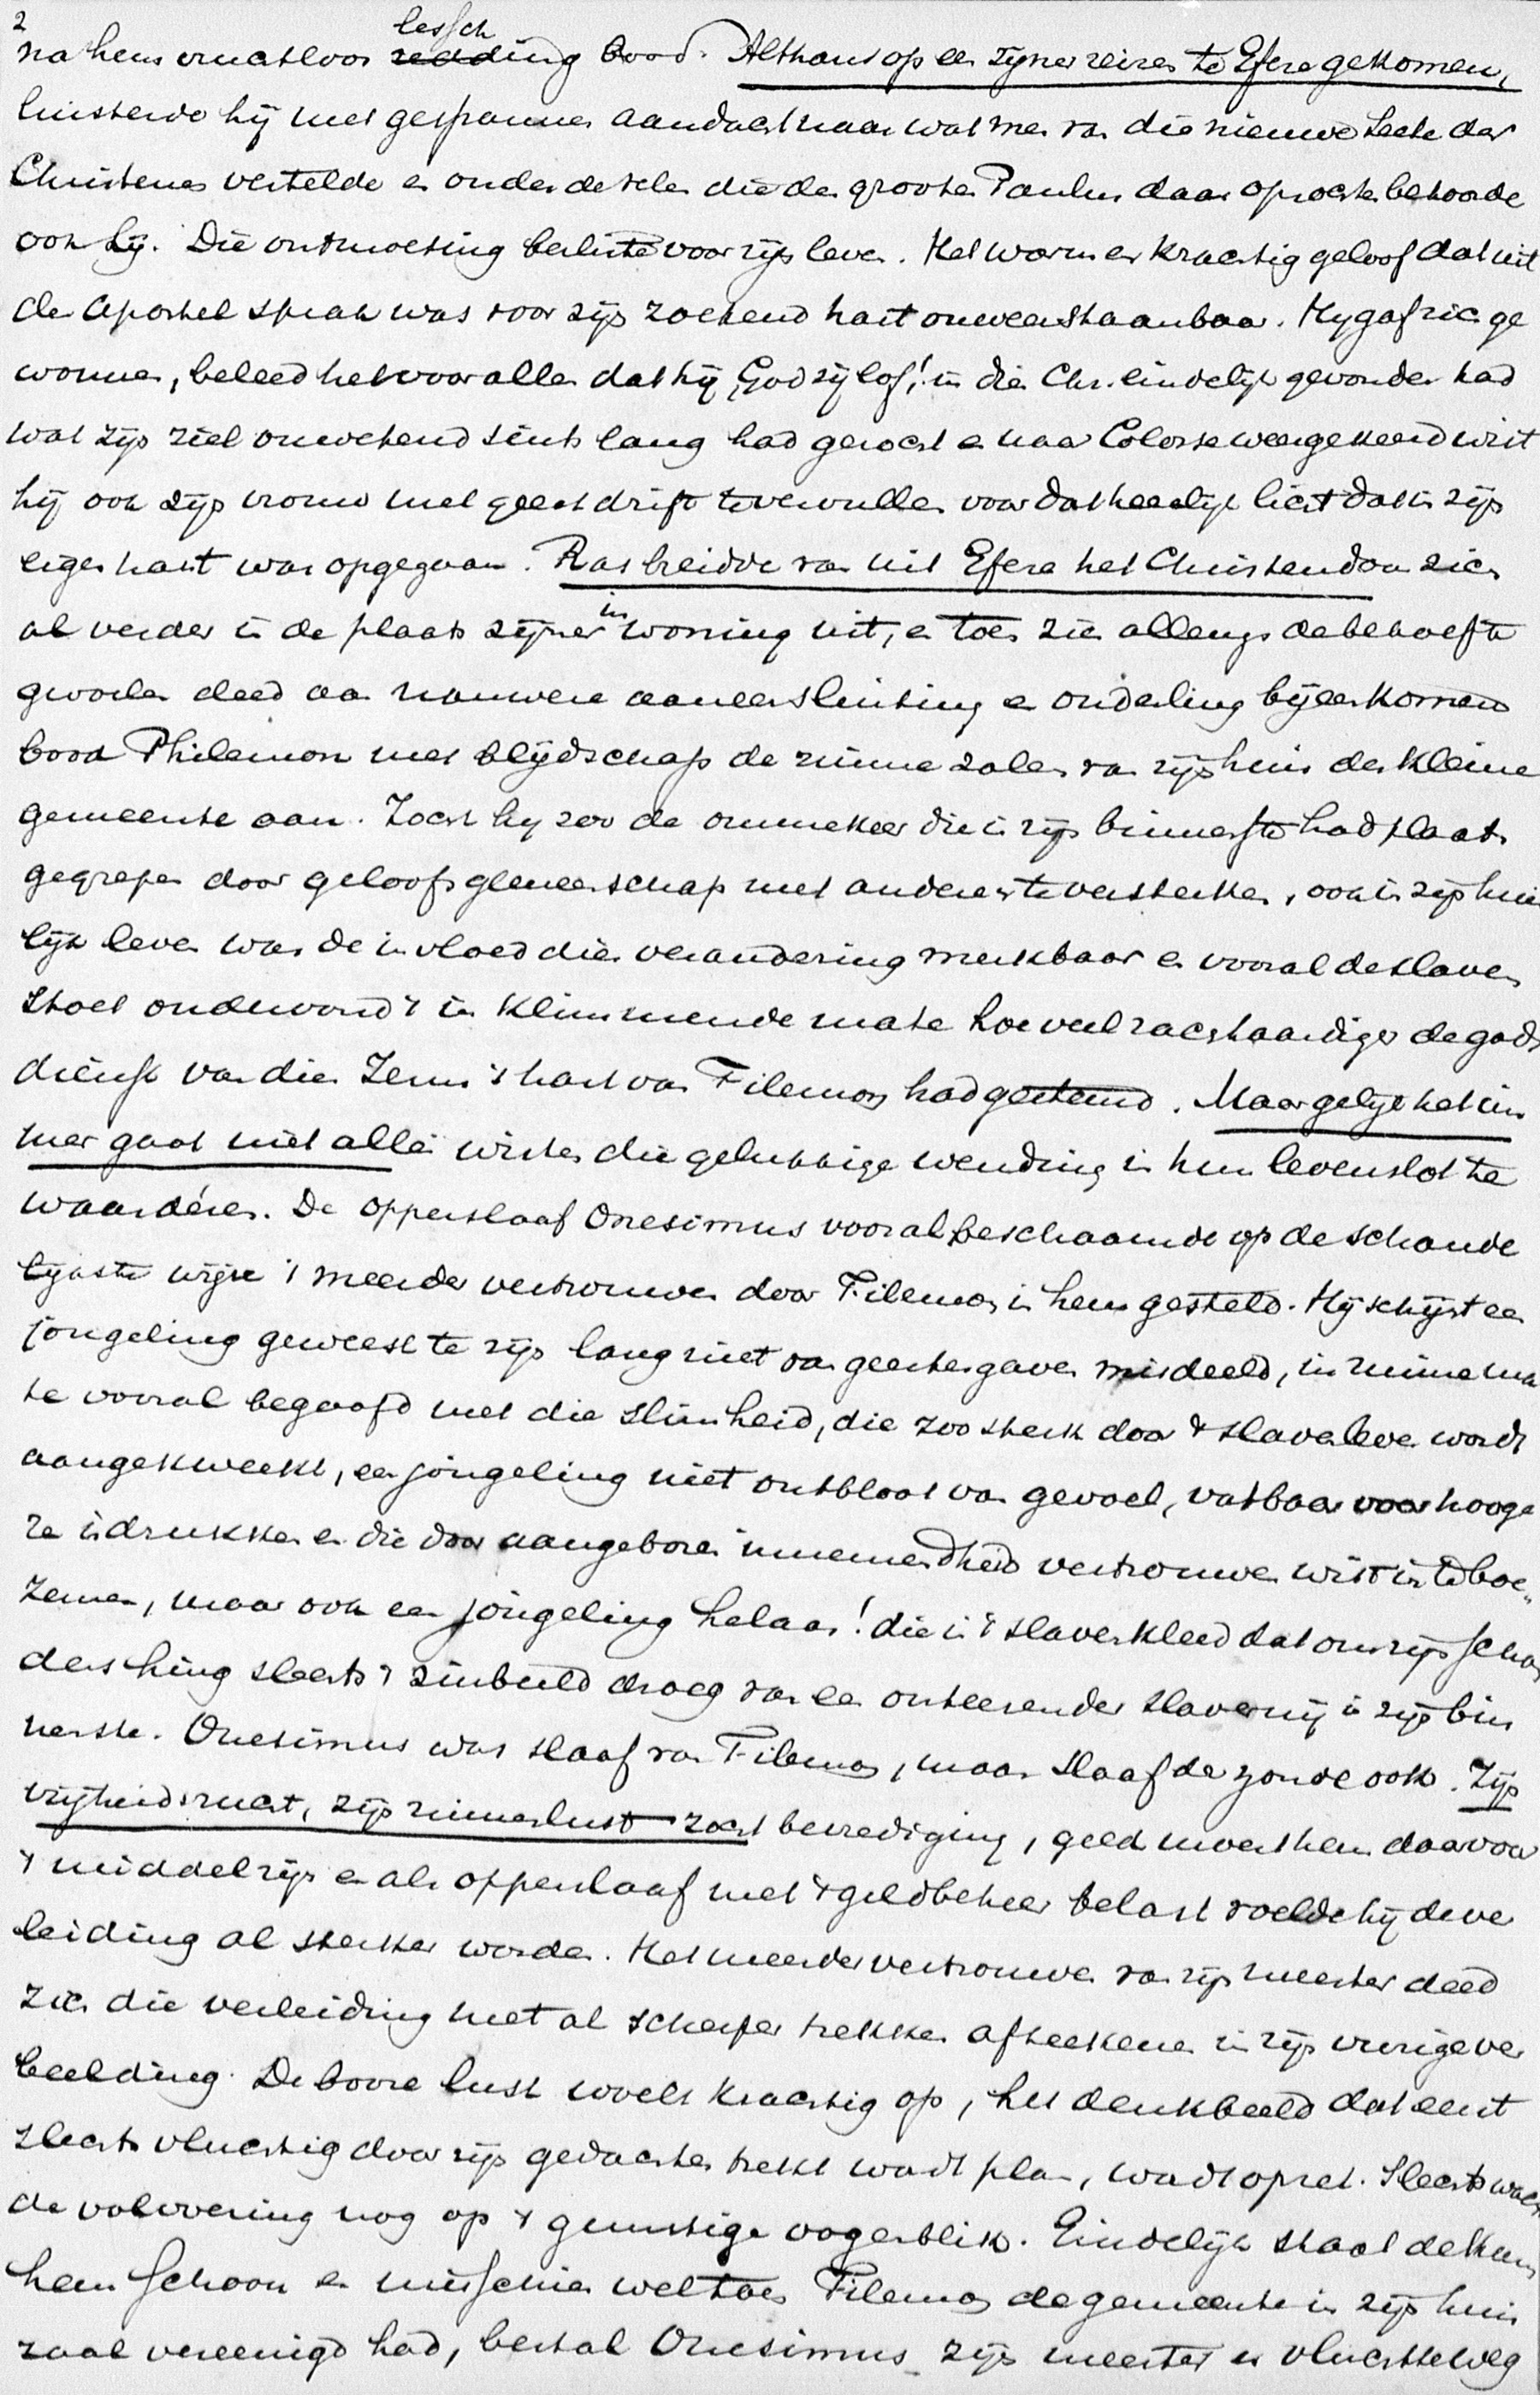 2
na hem vruchtloos lessch redding bood. Althans op een zijner reizen te Efeze gekomen,
luisterde hij met gespannen aandacht naar wat men van die nieuwe secte der
Christenen vertelde en onder de velen die den grooten Paulus daar opzochten behoorde
ook hij. Die ontmoeting besliste voor zijn leven. Het warm en krachtig geloof dat uit
den apostel sprak was voor zijn zoekend hart onweerstaanbaar. Hij gaf zich ge
wonnen, beleed het voor allen dat hij, God zij lof! in dien Chr. eindelijk gevonden had
wat zijn ziel onwetend sints lang had gezocht en naar Colosse weergekeerd wist
hij ook zijn vrouw met geestdrift te vervullen voor dat heerlijk licht dat in zijn
eigen hart was opgegaan. Ras breidde van uit Efeze het Christendom zich
al verder in de plaats zijner inwoning uit, en toen zich allengs de behoefte
gevoelen deed aan nauwere aaneensluiting en onderling bijeenkomen
bood Philemon met blijdschap de ruime zalen van zijn huis der kleine
gemeente aan. Zocht hij zoo de ommekeer die in zijn binnenste had plaats
gegrepen door geloofsgemeenschap met anderen te versterken, ook in zijn huis
lijk leven was de invloed dier verandering merkbaar en vooral de slaven
stoet ondervond 't in klimmende mate hoeveel zachtaardiger de gods
dienst van dien Jezus 't hart van Filemon had gestemd. Maar gelijk het im
mer gaat niet allen wisten die gelukkige wending in hun levenslot te
waardéren. De opperslaaf Onesimus vooral beschaamde op de schande
lijkste wijze 't meerder vertrouwen door Filemon in hem gesteld. Hij schijnt een
jongeling geweest te zijn lang niet van geestesgaven misdeeld, in ruime ma
te vooral begaafd met die slimheid, die zoo sterk door 't slavenleven wordt
aangekweekt, een jongeling niet ontbloot van gevoel, vatbaar voor hooge
re indrukken en die door aangeboren innemendheid vertrouwen wist in te boe„
zemen, maar ook een jongeling helaas! die in 't slavenkleed dat om zijn schou
ders hing slechts 't zinbeeld droeg van een onteerender slavernij in zijn bin
nenste. Onesimus was slaaf van Filemon, maar slaaf der zonde ook. Zijn
vrijheidszucht, zijn zinnenlust zocht bevrediging, geld moest hem daarvoor
't middel zijn en als opperslaaf met 't geldbeheer belast voelde hij de ver
leiding al sterker worden. Het meerder vertrouwen van zijn meester deed
zich die verleiding met al scherper trekken afteekenen in zijn vurige ver
beelding. De booze lust woelt krachtig op, het denkbeeld dat eerst
slechts vluchtig door zijn gedachten trekt wordt plan, wordt opzet. Slechts wacht
de volvoering nog op 't gunstige oogenblik. Eindelijk staat de kans
hem schoon en misschien wel toen Filemon de gemeente in zijn huis
zaal vereenigd had, bestal Onesimus zijn meester en vluchtte weg